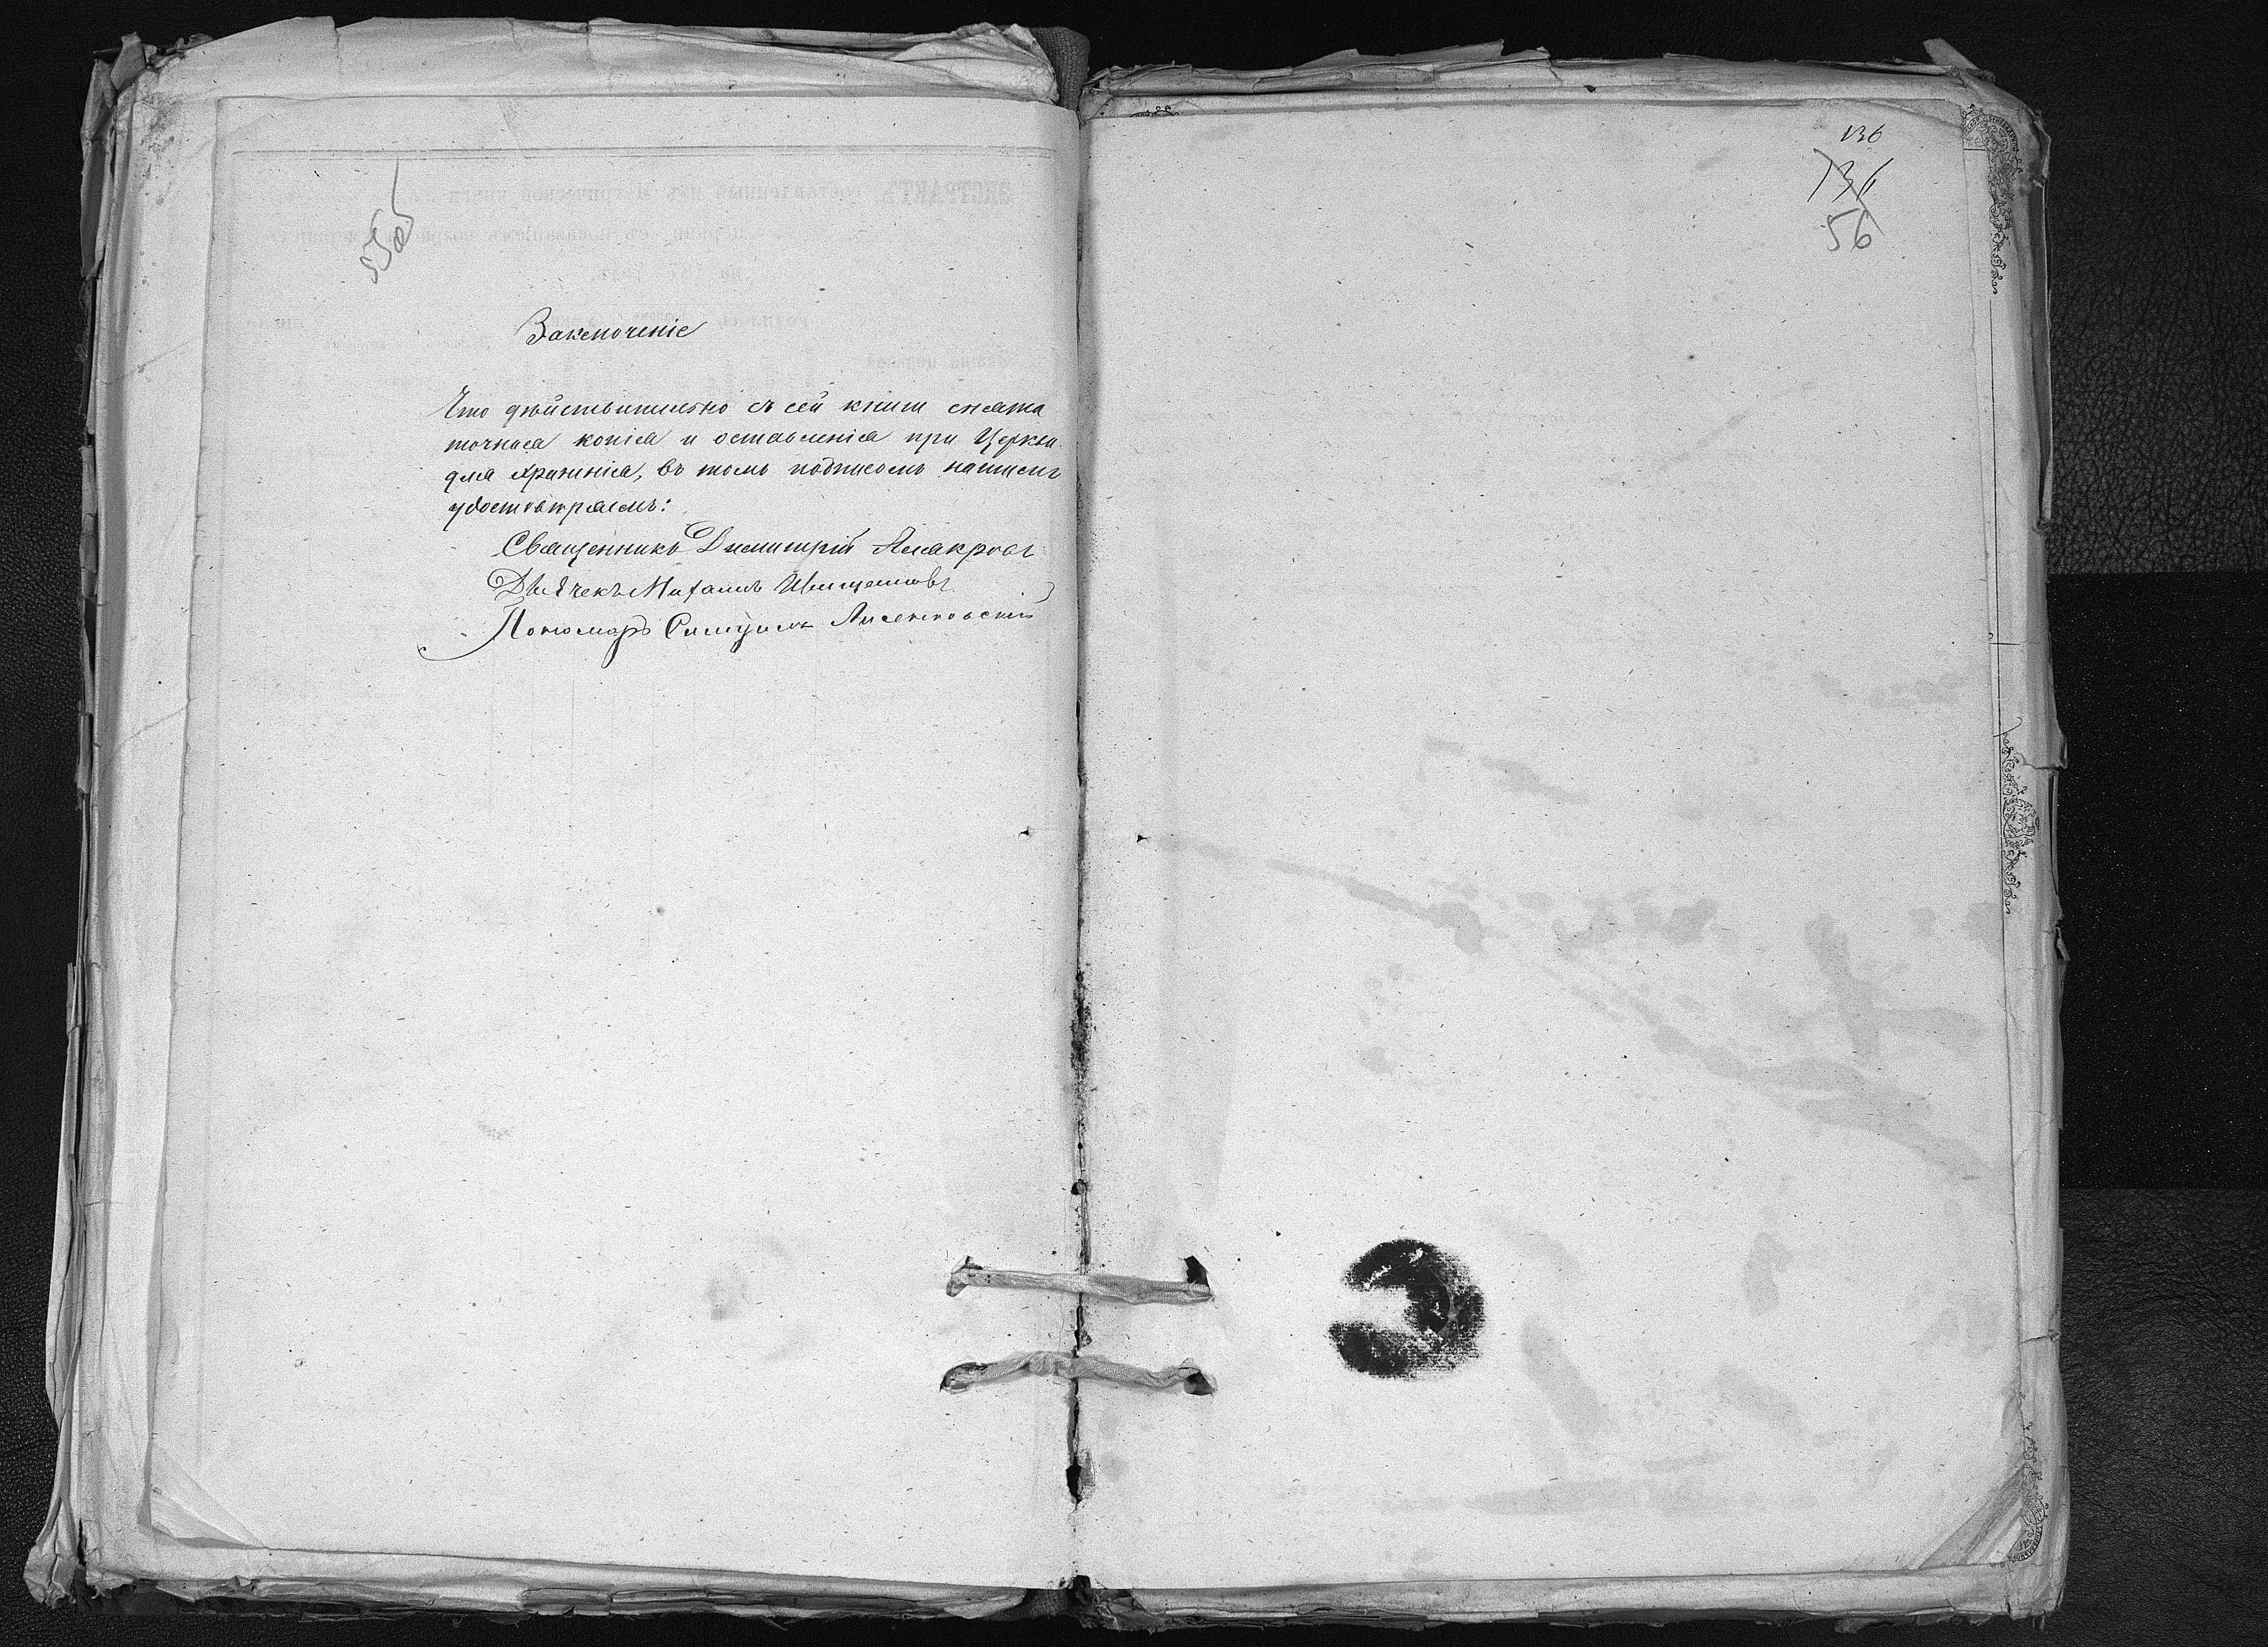 Заключеніе
Что дѣйствительно съ сей книги снята
точная копія и оставленія при Церкви
для храненія, въ томъ подписомъ нашимъ
удостовѣряемъ:
Священникъ Димитрій
Дьячекъ Михаилъ
Пономарь
136
136
56